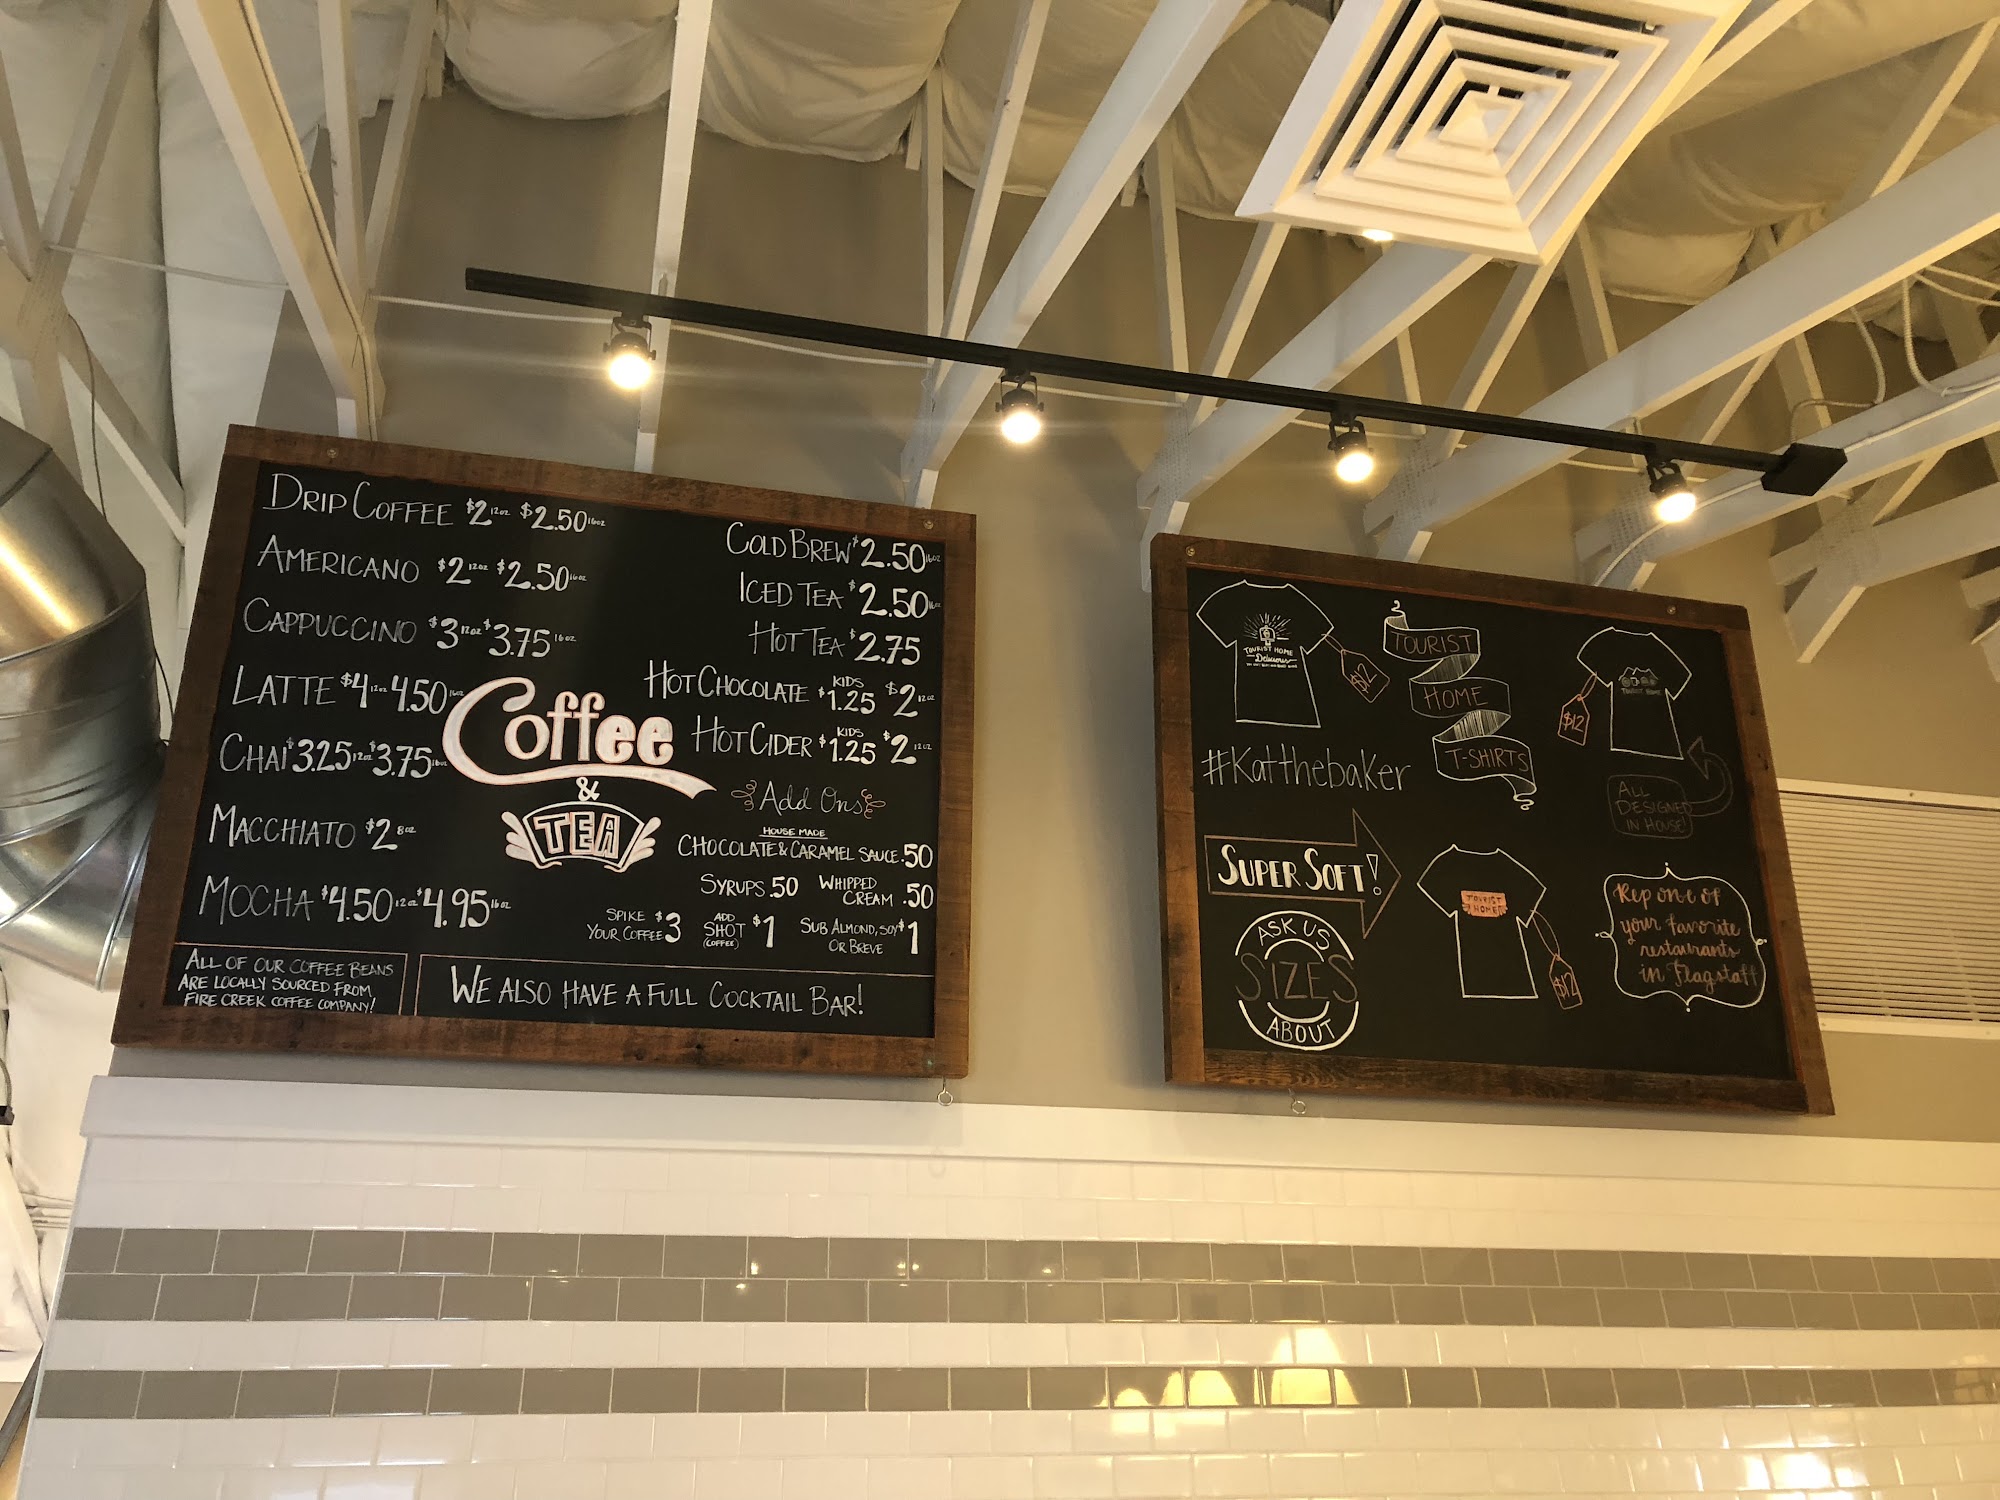 DRIP COFFEE $2 12oz $2.50 16oz
AMERICANO $2 12oz $2.50 16oz
CAPPUCCINO $3 12oz $3.75 16oz
LATTE $4 12oz 4.50 16oz
CHAI $3.25 12oz $3.75 16oz
MACCHIATO $2 8oz
MOCHA $4.50 12oz $4.95 16oz
Coffee
&
TEA
COLD BREW $2.50 16oz
ICED TEA $2.50 16oz
HOT TEA $2.75
HOT CHOCOLATE KIDS $1.25 $2 12oz
HOT CIDER KIDS $1.25 $2 12oz
Add Ons
HOUSE MADE
CHOCOLATE & CARAMEL SAUCE .50
SYRUPS .50 WHIPPED CREAM .50
SPIKE YOUR COFFEE $3
ADD SHOT (COFFEE) $1
SUB ALMOND, SOY OR BREVE $1
ALL OF OUR COFFEE BEANS
ARE LOCALLY SOURCED FROM
FIRE CREEK COFFEE COMPANY!
WE ALSO HAVE A FULL COCKTAIL BAR!
TOURIST HOME
Delicious
$12
TOURIST
HOME
T-SHIRTS
TOURIST HOME
$12
#Katthebaker
ALL
DESIGNED
IN HOUSE!
SUPER SOFT!
ASK US
ABOUT
SIZES
TOURIST
HOME
$12
Rep one of
your favorite
restaurants
in Flagstaff